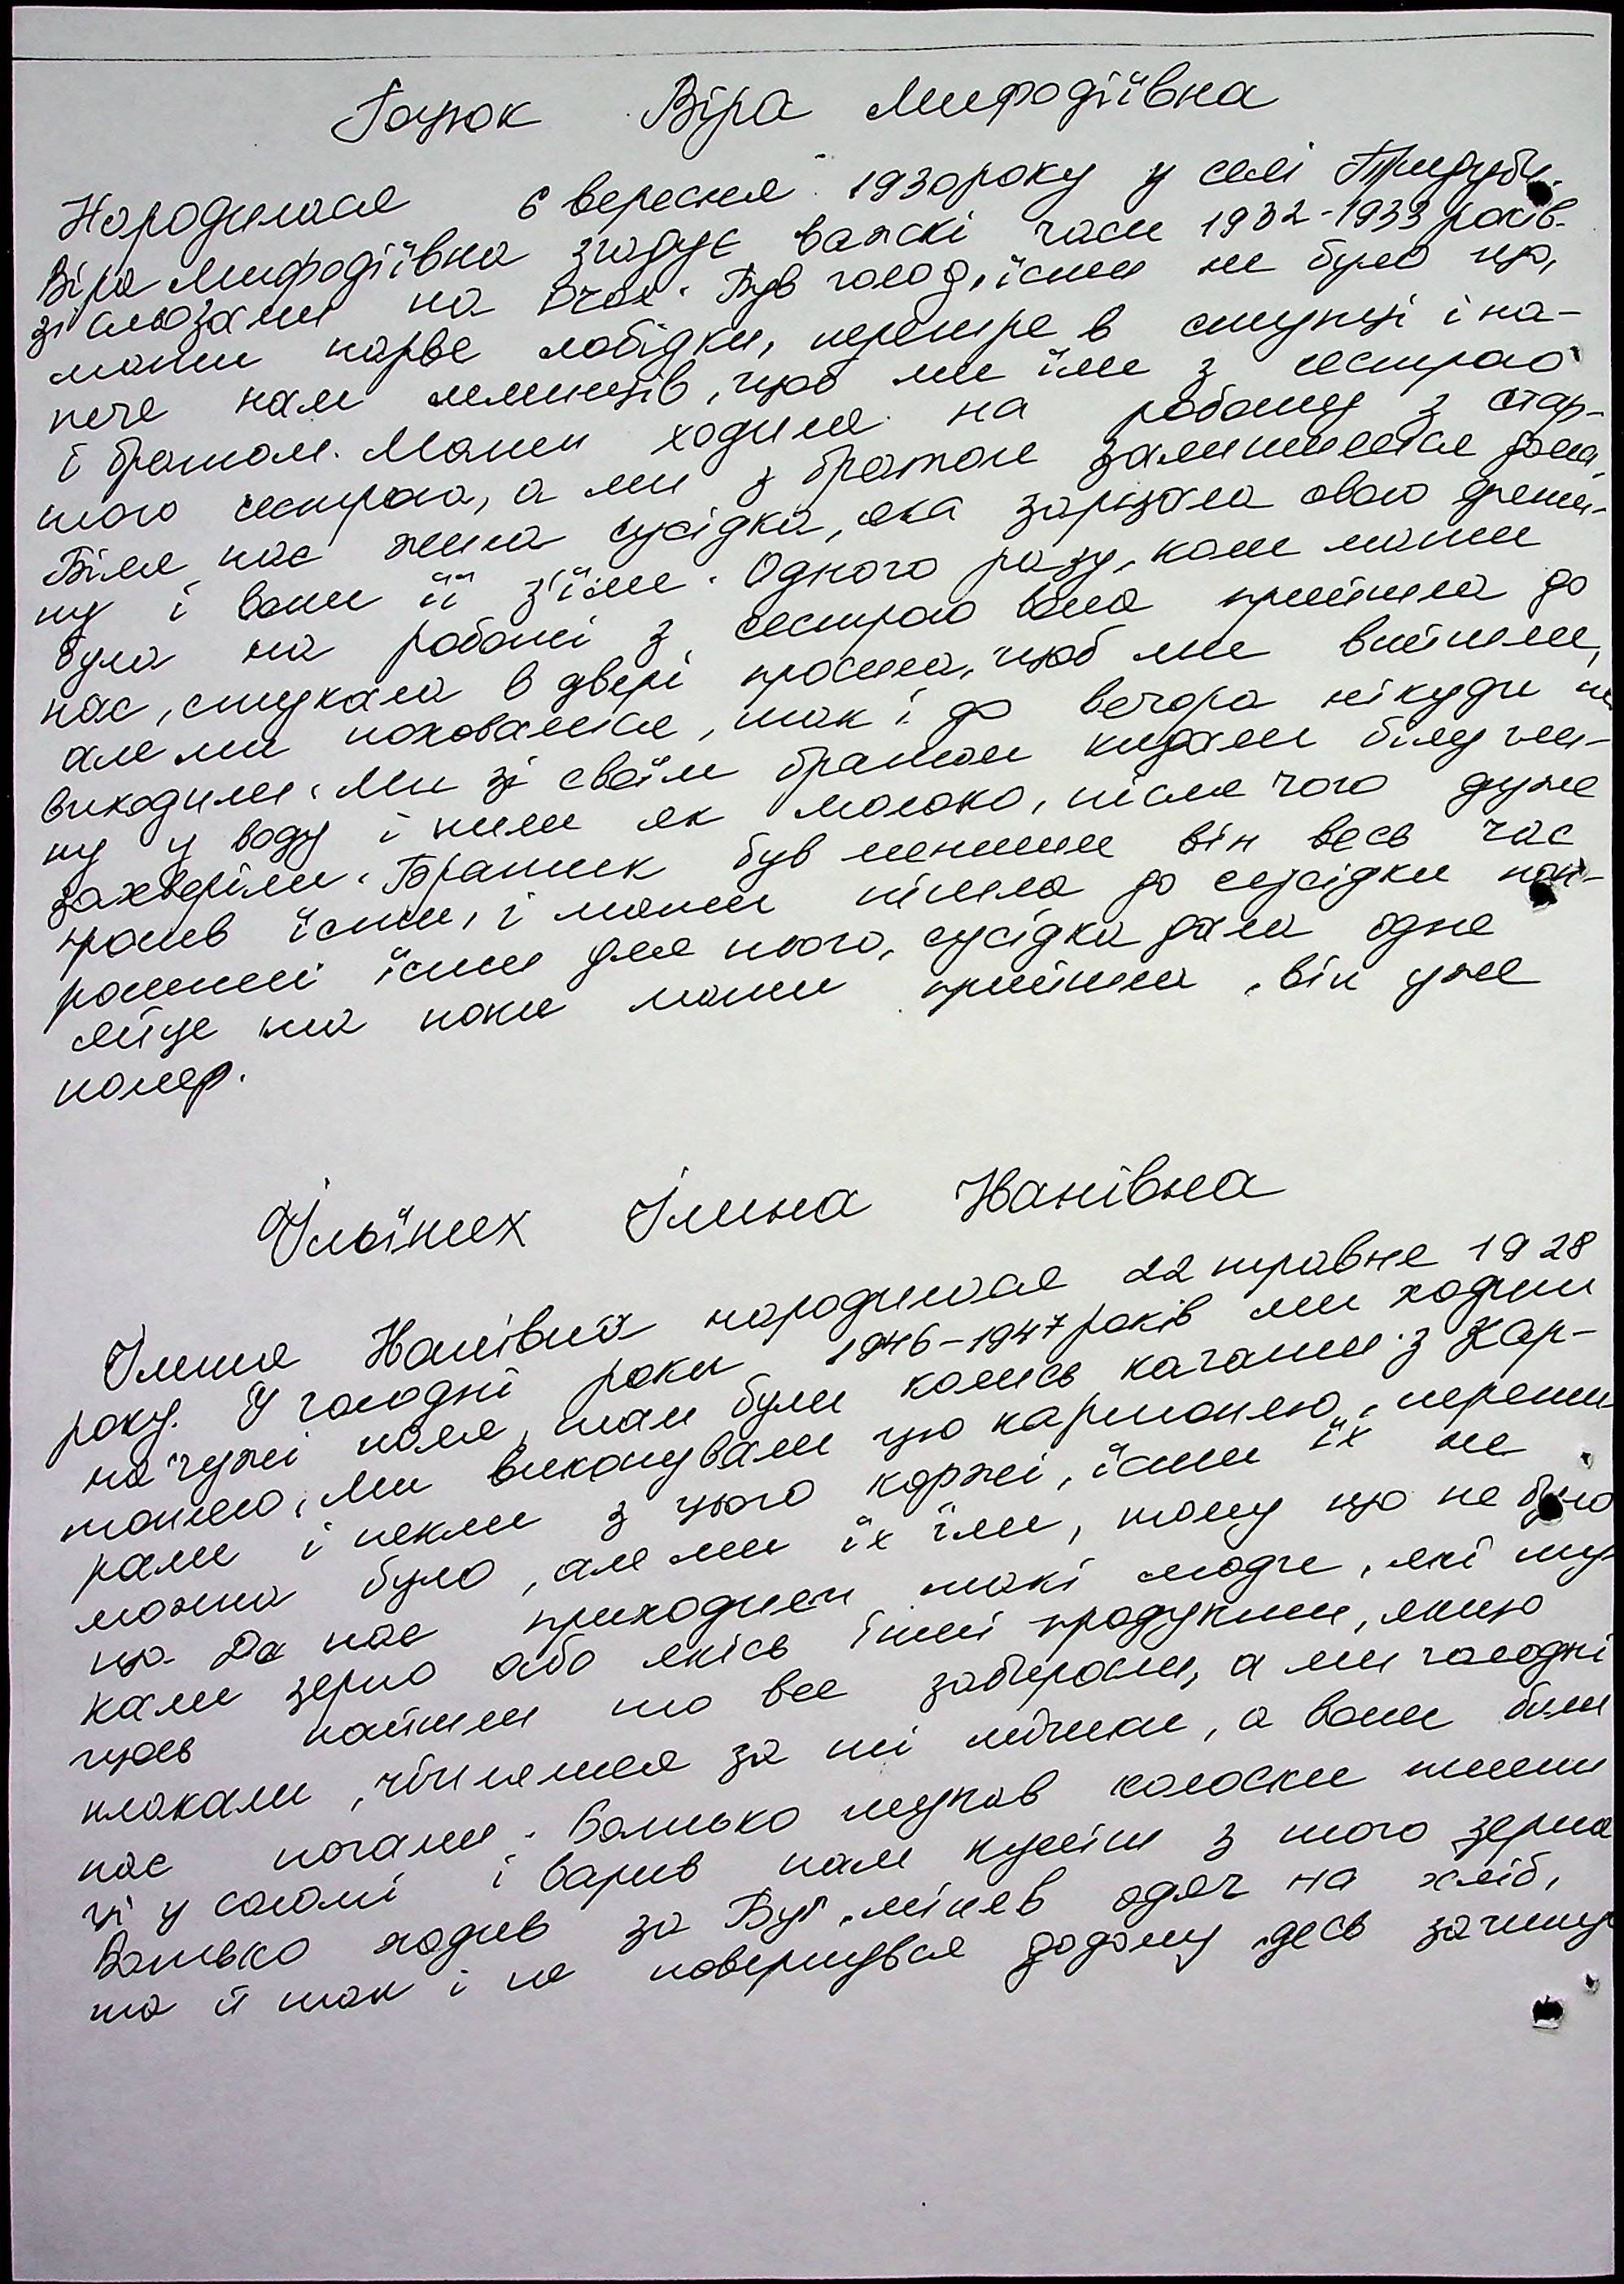 Гоцюк Віра Мифодіївна
Народилася 6 вересня 1930 року у селі Тридуби.
Віра Мифодіївна згадує важкі часи 1932-1933 років.
зі сльозами на очах. Був голод, їсти не було що,
мати нарве лобідки, перетре в ступці і на-
пече нам млинців, щоб ми їли з сестрою
і братом. Мати ходила на роботу з стар-
шою сестрою, а ми з братом залишилися дома.
Біля нас жила сусідка, яка зарізала свою дити-
ну і вони її з'їли. Одного разу, коли мати
була на роботі з сестрою вона прийшла до
нас, стукала в двері просила, щоб ми вийшли,
але ми поховалися, так і до вечора нікуди не
виходили. Ми зі своїм братом кидали білу гли-
ну у воду і пили як молоко, після чого дуже
захворіли. Братик був менший він весь час
просив їсти, і мати пішла до сусідки поп-
росити їсти для нього, сусідка дала одне
яйце та поки мати прийшла, він уже
помер.
Ільїних Ілина Іванівна
Ілина Іванівна народилася 22 травня 1928
року. У голодні роки 1946-1947 років ми ходили
на чужі поля, там були колись качани з кар-
топлею, ми викопували цю картоплю, перети
рали і пекли з цього коржі, їсти їх не
можна було, але ми їх їли, тому що не було
що. До нас приходили такі люди, які шу
кали зерно або якісь інші продукти, якщо
щось найшли то все забирали, а ми голодні
плакали, чіплялися за ті мішки, а вони били
нас ногами. Батько шукав колоски пшени
ці у соломі і варив нам куліш з того зерна
Батько ходив за Буг, міняв одяг на хліб,
та й так і не повернувся додому десь загинув